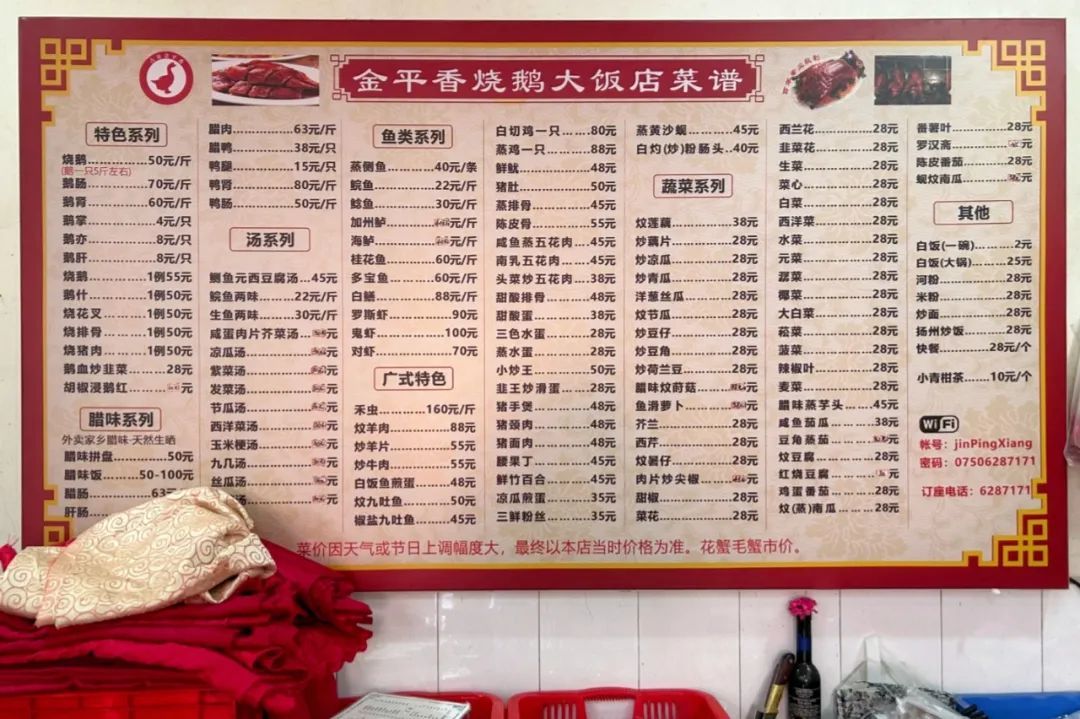 金平香烧鹅大饭店菜谱
特色系列
烧鹅……50元/斤
(鹅一只5斤左右)
鹅肠……70元/斤
鹅肾……60元/斤
鹅掌……4元/只
鹅亦……8元/只
鹅肝……8元/只
烧鹅……1例55元
鹅什……1例50元
烧花叉……1例50元
烧排骨……1例50元
烧猪肉……1例50元
鹅血炒韭菜……28元
胡椒浸鹅红……元
腊味系列
外卖家乡腊味·天然生晒
腊味拼盘……50元
腊味饭……50-100元
腊肠……63元
肝肠
腊肉……63元/斤
腊鸭……38元/只
鸭腿……15元/只
鸭肾……80元/斤
鸭肠……50元/斤
汤系列
鲗鱼元西豆腐汤…45元
鲩鱼两味……22元/斤
生鱼两味……30元/斤
咸蛋肉片芥菜汤…元
凉瓜汤……元
紫菜汤……元
发菜汤……元
节瓜汤……元
西洋菜汤……元
玉米梗汤……元
九几汤……元
丝瓜汤……元
元
鱼类系列
蒸侧鱼……40元/条
鲩鱼……22元/斤
鲶鱼……30元/斤
加州鲈……元/斤
海鲈……元/斤
桂花鱼……60元/斤
多宝鱼……60元/斤
白鳝……88元/斤
罗斯虾……90元
鬼虾……100元
对虾……70元
广式特色
禾虫……160元/斤
炆羊肉……88元
炒羊片……55元
炒牛肉……55元
白饭鱼煎蛋……48元
炆九吐鱼……50元
椒盐九吐鱼……45元
白切鸡一只……80元
蒸鸡一只……88元
鲜鱿……48元
猪肚……50元
蒸排骨……45元
陈皮骨……55元
咸鱼蒸五花肉…45元
南乳五花肉……45元
头菜炒五花肉…38元
甜酸排骨……48元
甜酸蛋……38元
三色水蛋……28元
蒸水蛋……28元
小炒王……50元
韭王炒滑蛋……28元
猪手煲……48元
猪颈肉……48元
猪面肉……48元
腰果丁……45元
鲜竹百合……45元
凉瓜煎蛋……35元
三鲜粉丝……35元
蒸黄沙蚬……45元
白灼(炒)粉肠头..40元
蔬菜系列
炆莲藕……38元
炒藕片……28元
炒凉瓜……28元
炒青瓜……28元
洋葱丝瓜……28元
炆节瓜……28元
炒豆仔……28元
炒豆角……28元
炒荷兰豆……28元
腊味炆莳菇……元
鱼滑萝卜……元
芥兰……28元
西芹……28元
炆薯仔……28元
肉片炒尖椒……元
甜椒……28元
菜花……28元
西兰花……28元
韭菜花……28元
生菜……28元
菜心……28元
白菜……28元
西洋菜……28元
水菜……28元
元菜……28元
潺菜……28元
椰菜……28元
大白菜……28元
菘菜……28元
菠菜……28元
辣椒叶……28元
麦菜……28元
腊味蒸芋头…45元
咸鱼茄瓜……38元
豆角蒸茄……元
炆豆腐……28元
红烧豆腐……元
鸡蛋番茄……28元
炆(蒸)南瓜……28元
番薯叶……28元
罗汉斋……元
陈皮番茄……28元
蚬炆南瓜……元
其他
白饭(一碗)……2元
白饭(大锅)……25元
河粉……28元
米粉……28元
炒面……28元
扬州炒饭……28元
快餐……28元/个
小青柑茶……10元/个
WiFi
帐号：jinPingXiang
密码：07506287171
订座电话：6287171
菜价因天气或节日上调幅度大，最终以本店当时价格为准。花蟹毛蟹市价。